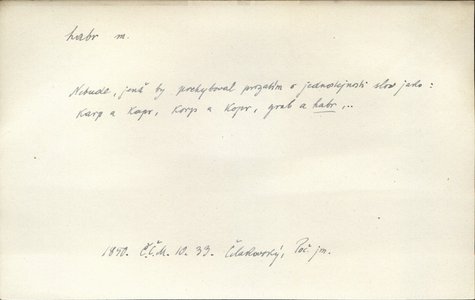 habr m.
Nebude, jenž by pochyboval prozatím o jednostejnosti slow jako:
Karp a Kapr, Korp a Kopr, grab a habr,..
1850. Č.Č.M. 10. 39. Čelakovský, Poč. jm.